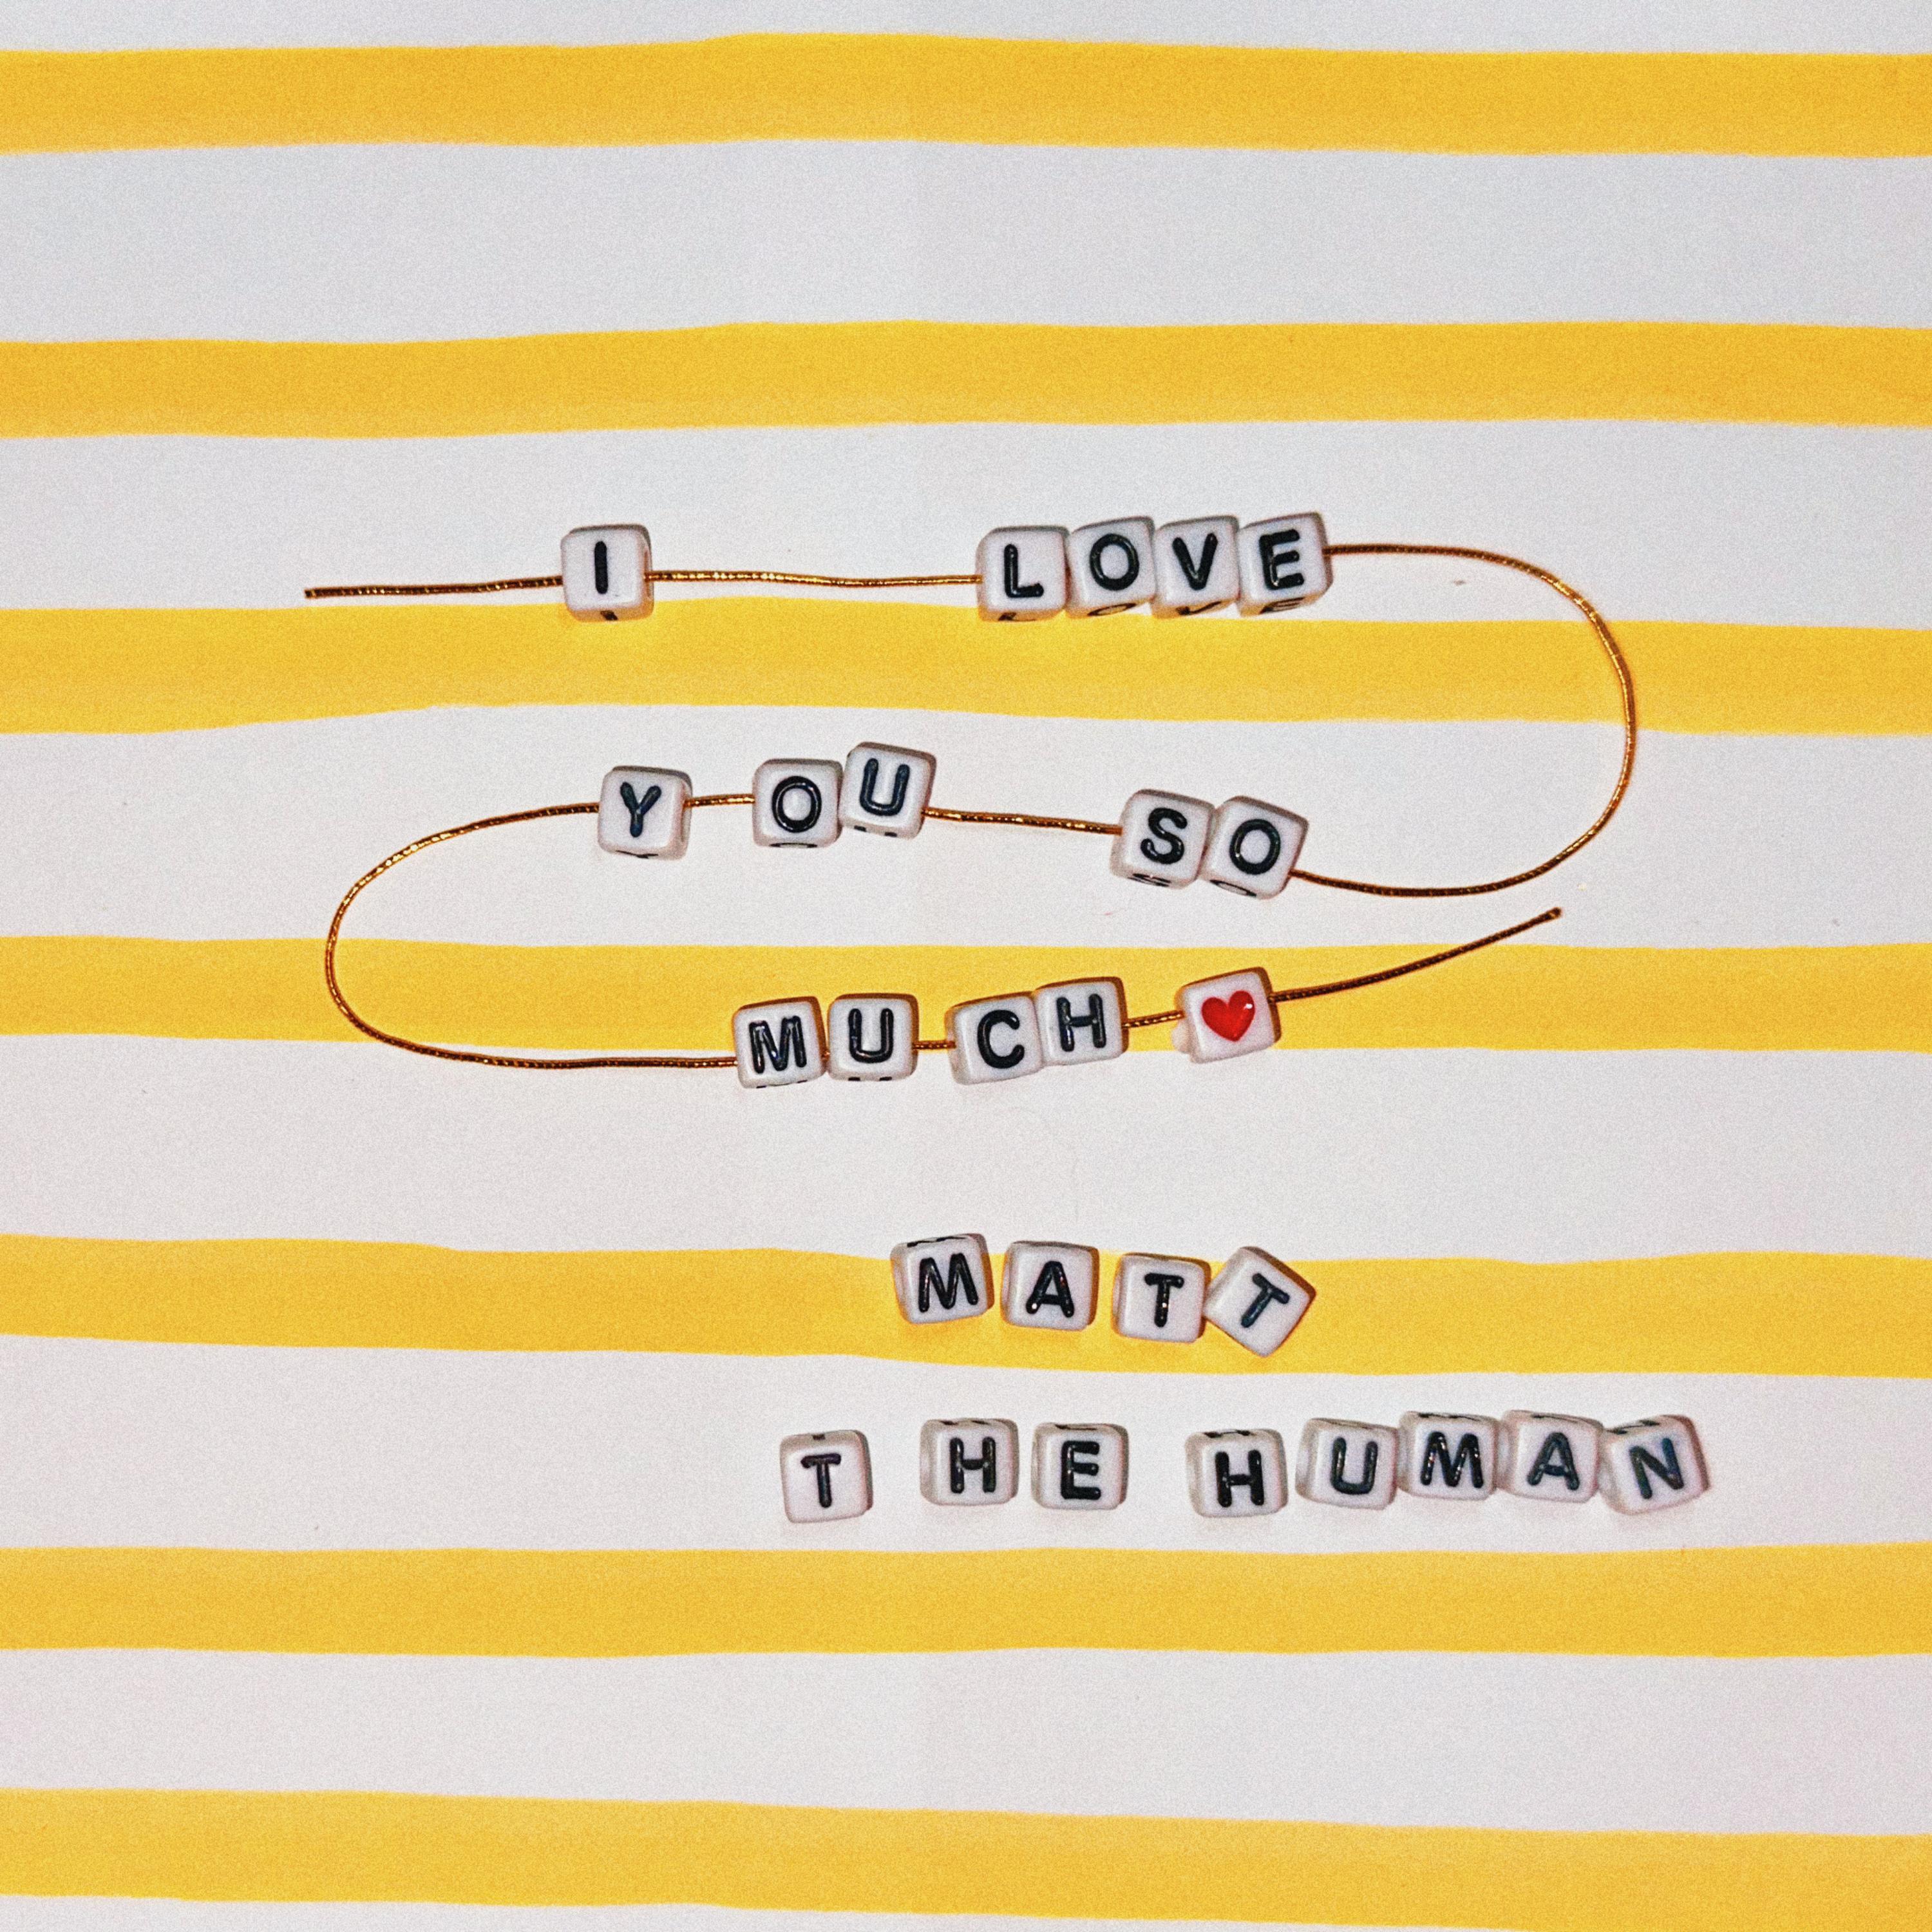 I LOVE
YOU SO
MUCH ❤
MATT
THE HUMAN